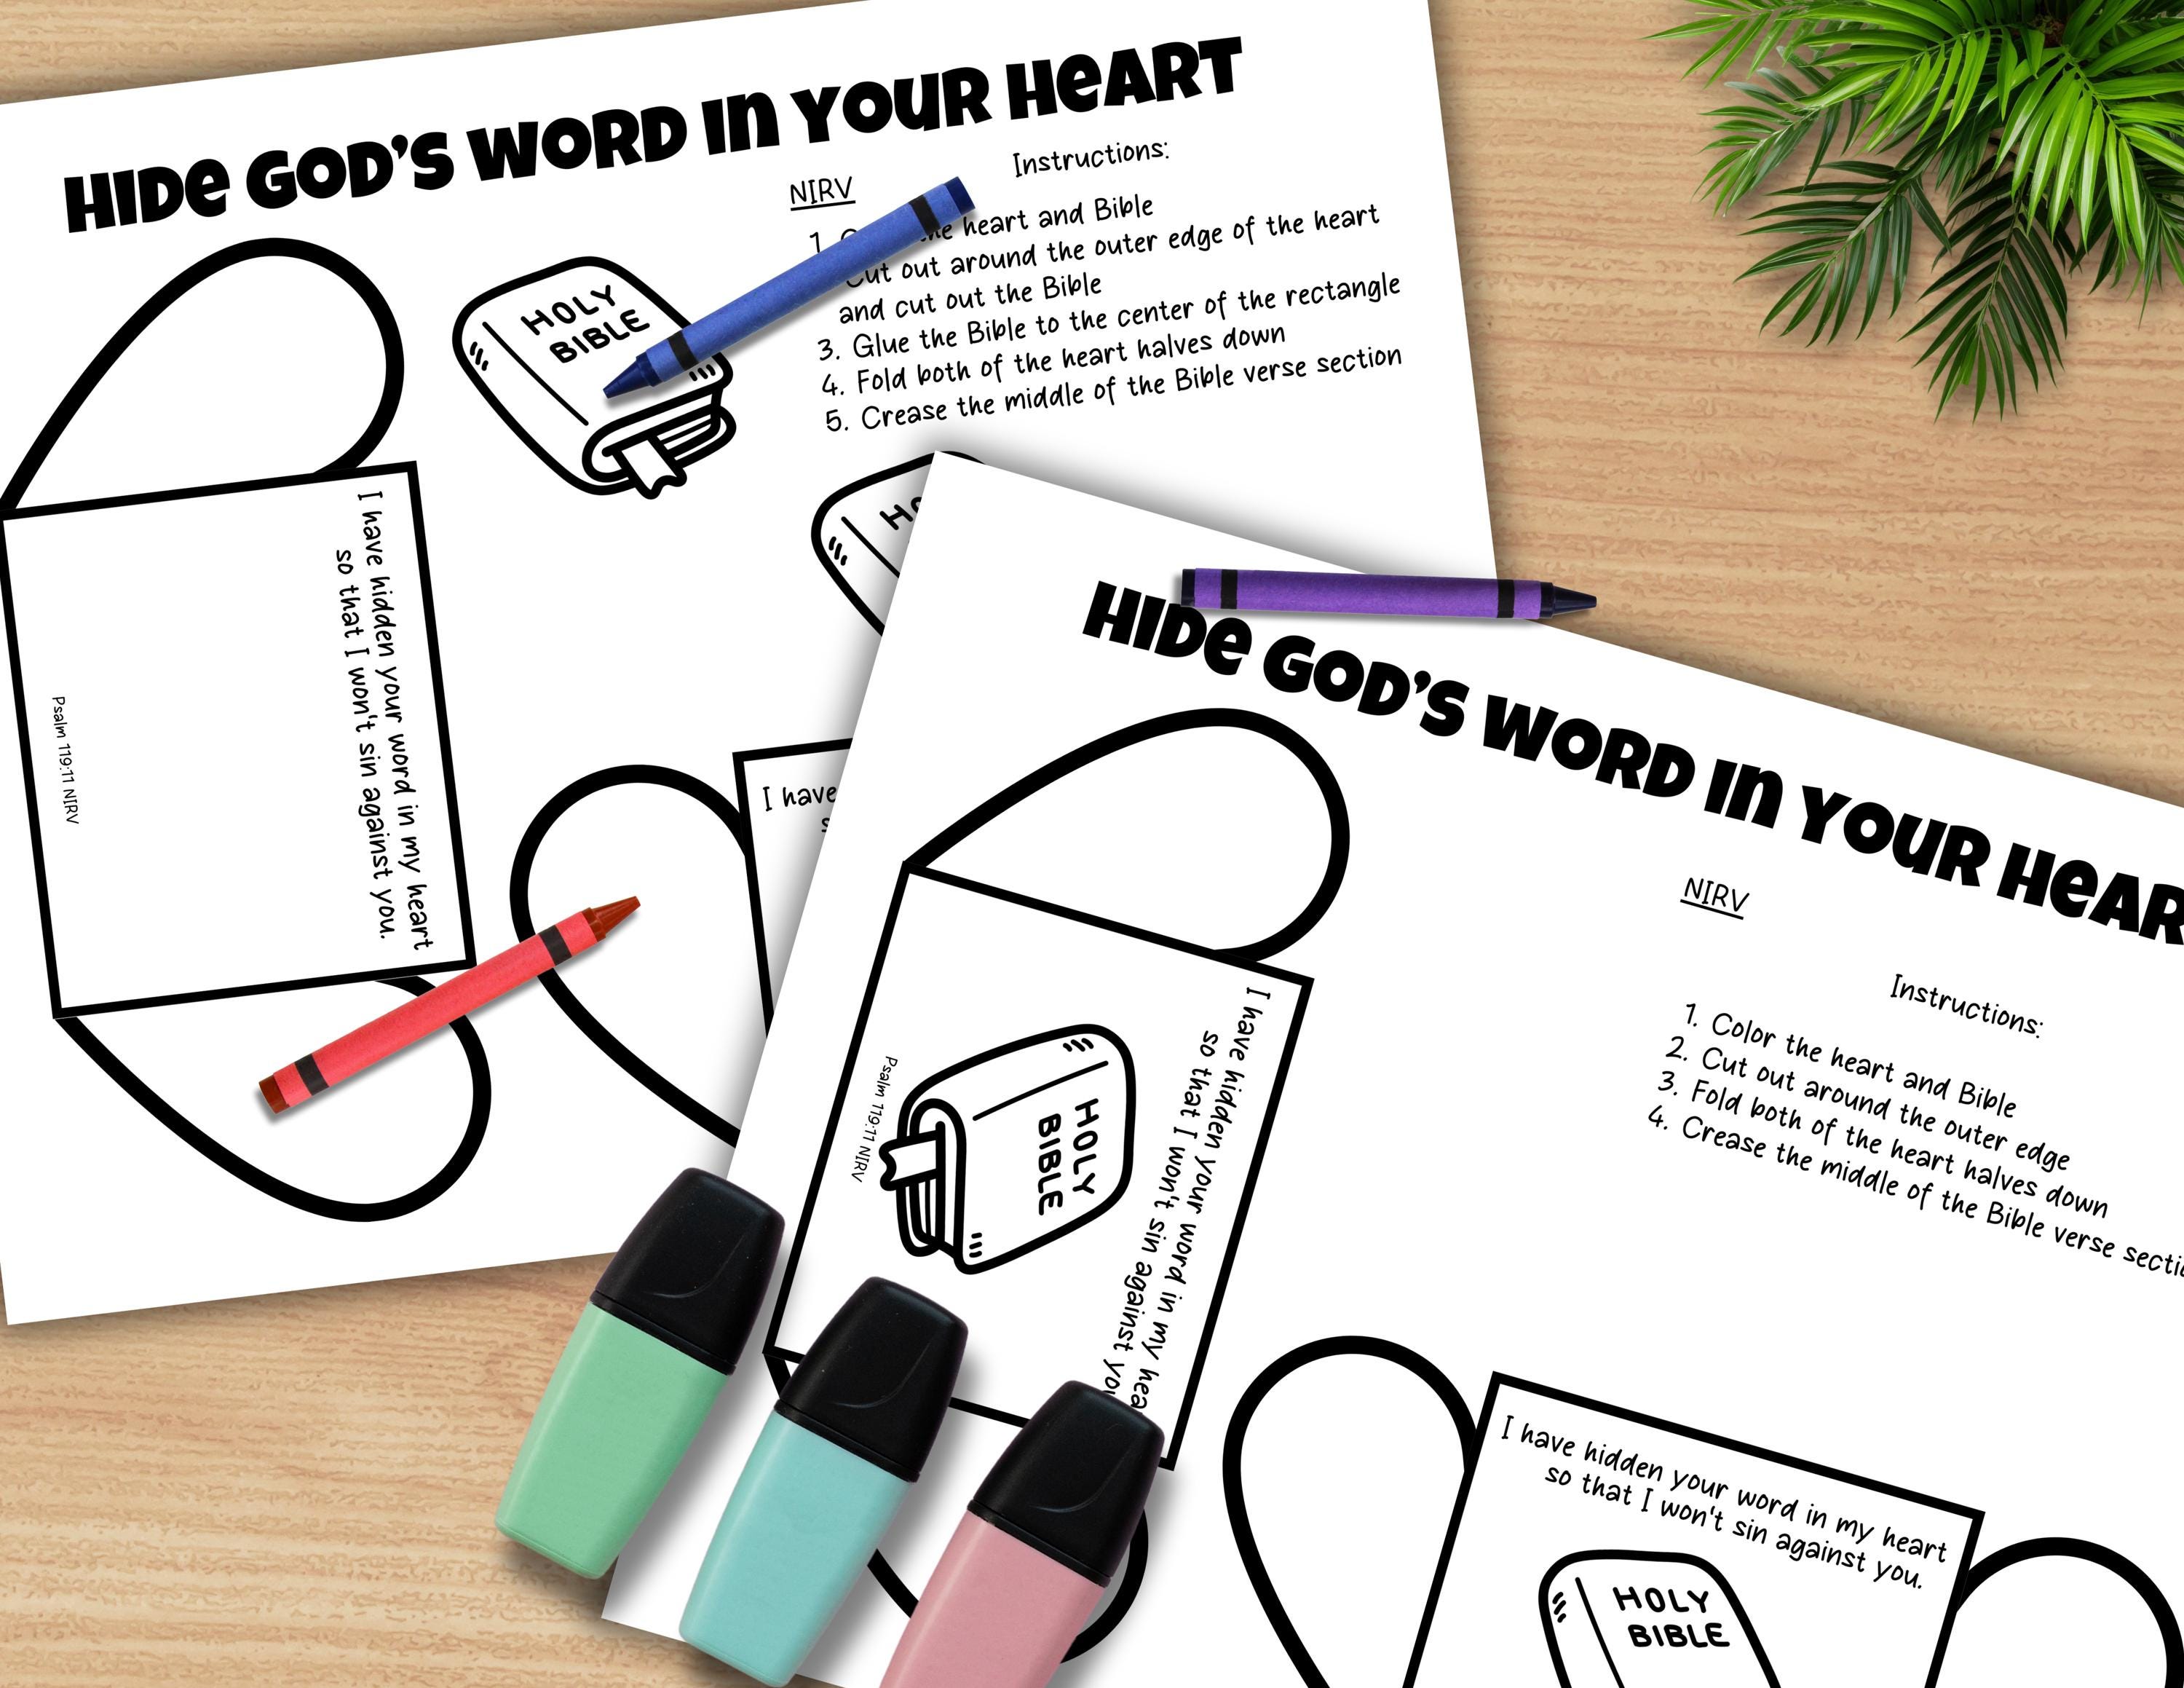 HIDe GOD'S WORD In YOUR HeART
NIRV
Instructions:
1. heart and Bible
Cut out around the outer edge of the heart
and cut out the Bible
3. Glue the Bible to the center of the rectangle
4. Fold both of the heart halves down
5. Crease the middle of the Bible verse section
HOLY
BIBLE
I have hidden your word in my heart
so that I won't sin against you.
Psalm 119:11 NIRV
I have
HIDe GOD'S WORD In YOUR
NIRV
Instructions:
1. Color the heart and Bible
2. Cut out around the outer edge
3. Fold both of the heart halves down
4. Crease the middle of the Bible verse
I have hidden your word in my
so that I won't sin against
HOLY
BIBLE
Psalm 119:11 NIRV
I have hidden your word in my heart
so that I won't sin against you.
HOLY
BIBLE